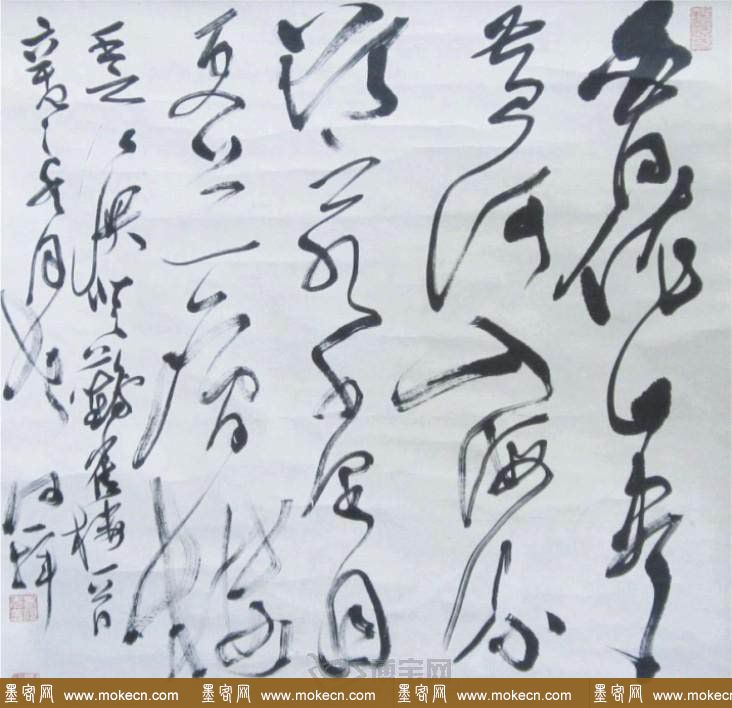 白日依山盡
黄河入海流
欲窮千里目
更上一層樓
王之涣登鸛雀樓一首
月
博宝网
墨客网 www.mokecn.com 墨客网 www.mokecn.com 墨客网 www.mokecn.com 墨客网 www.mokecn.com